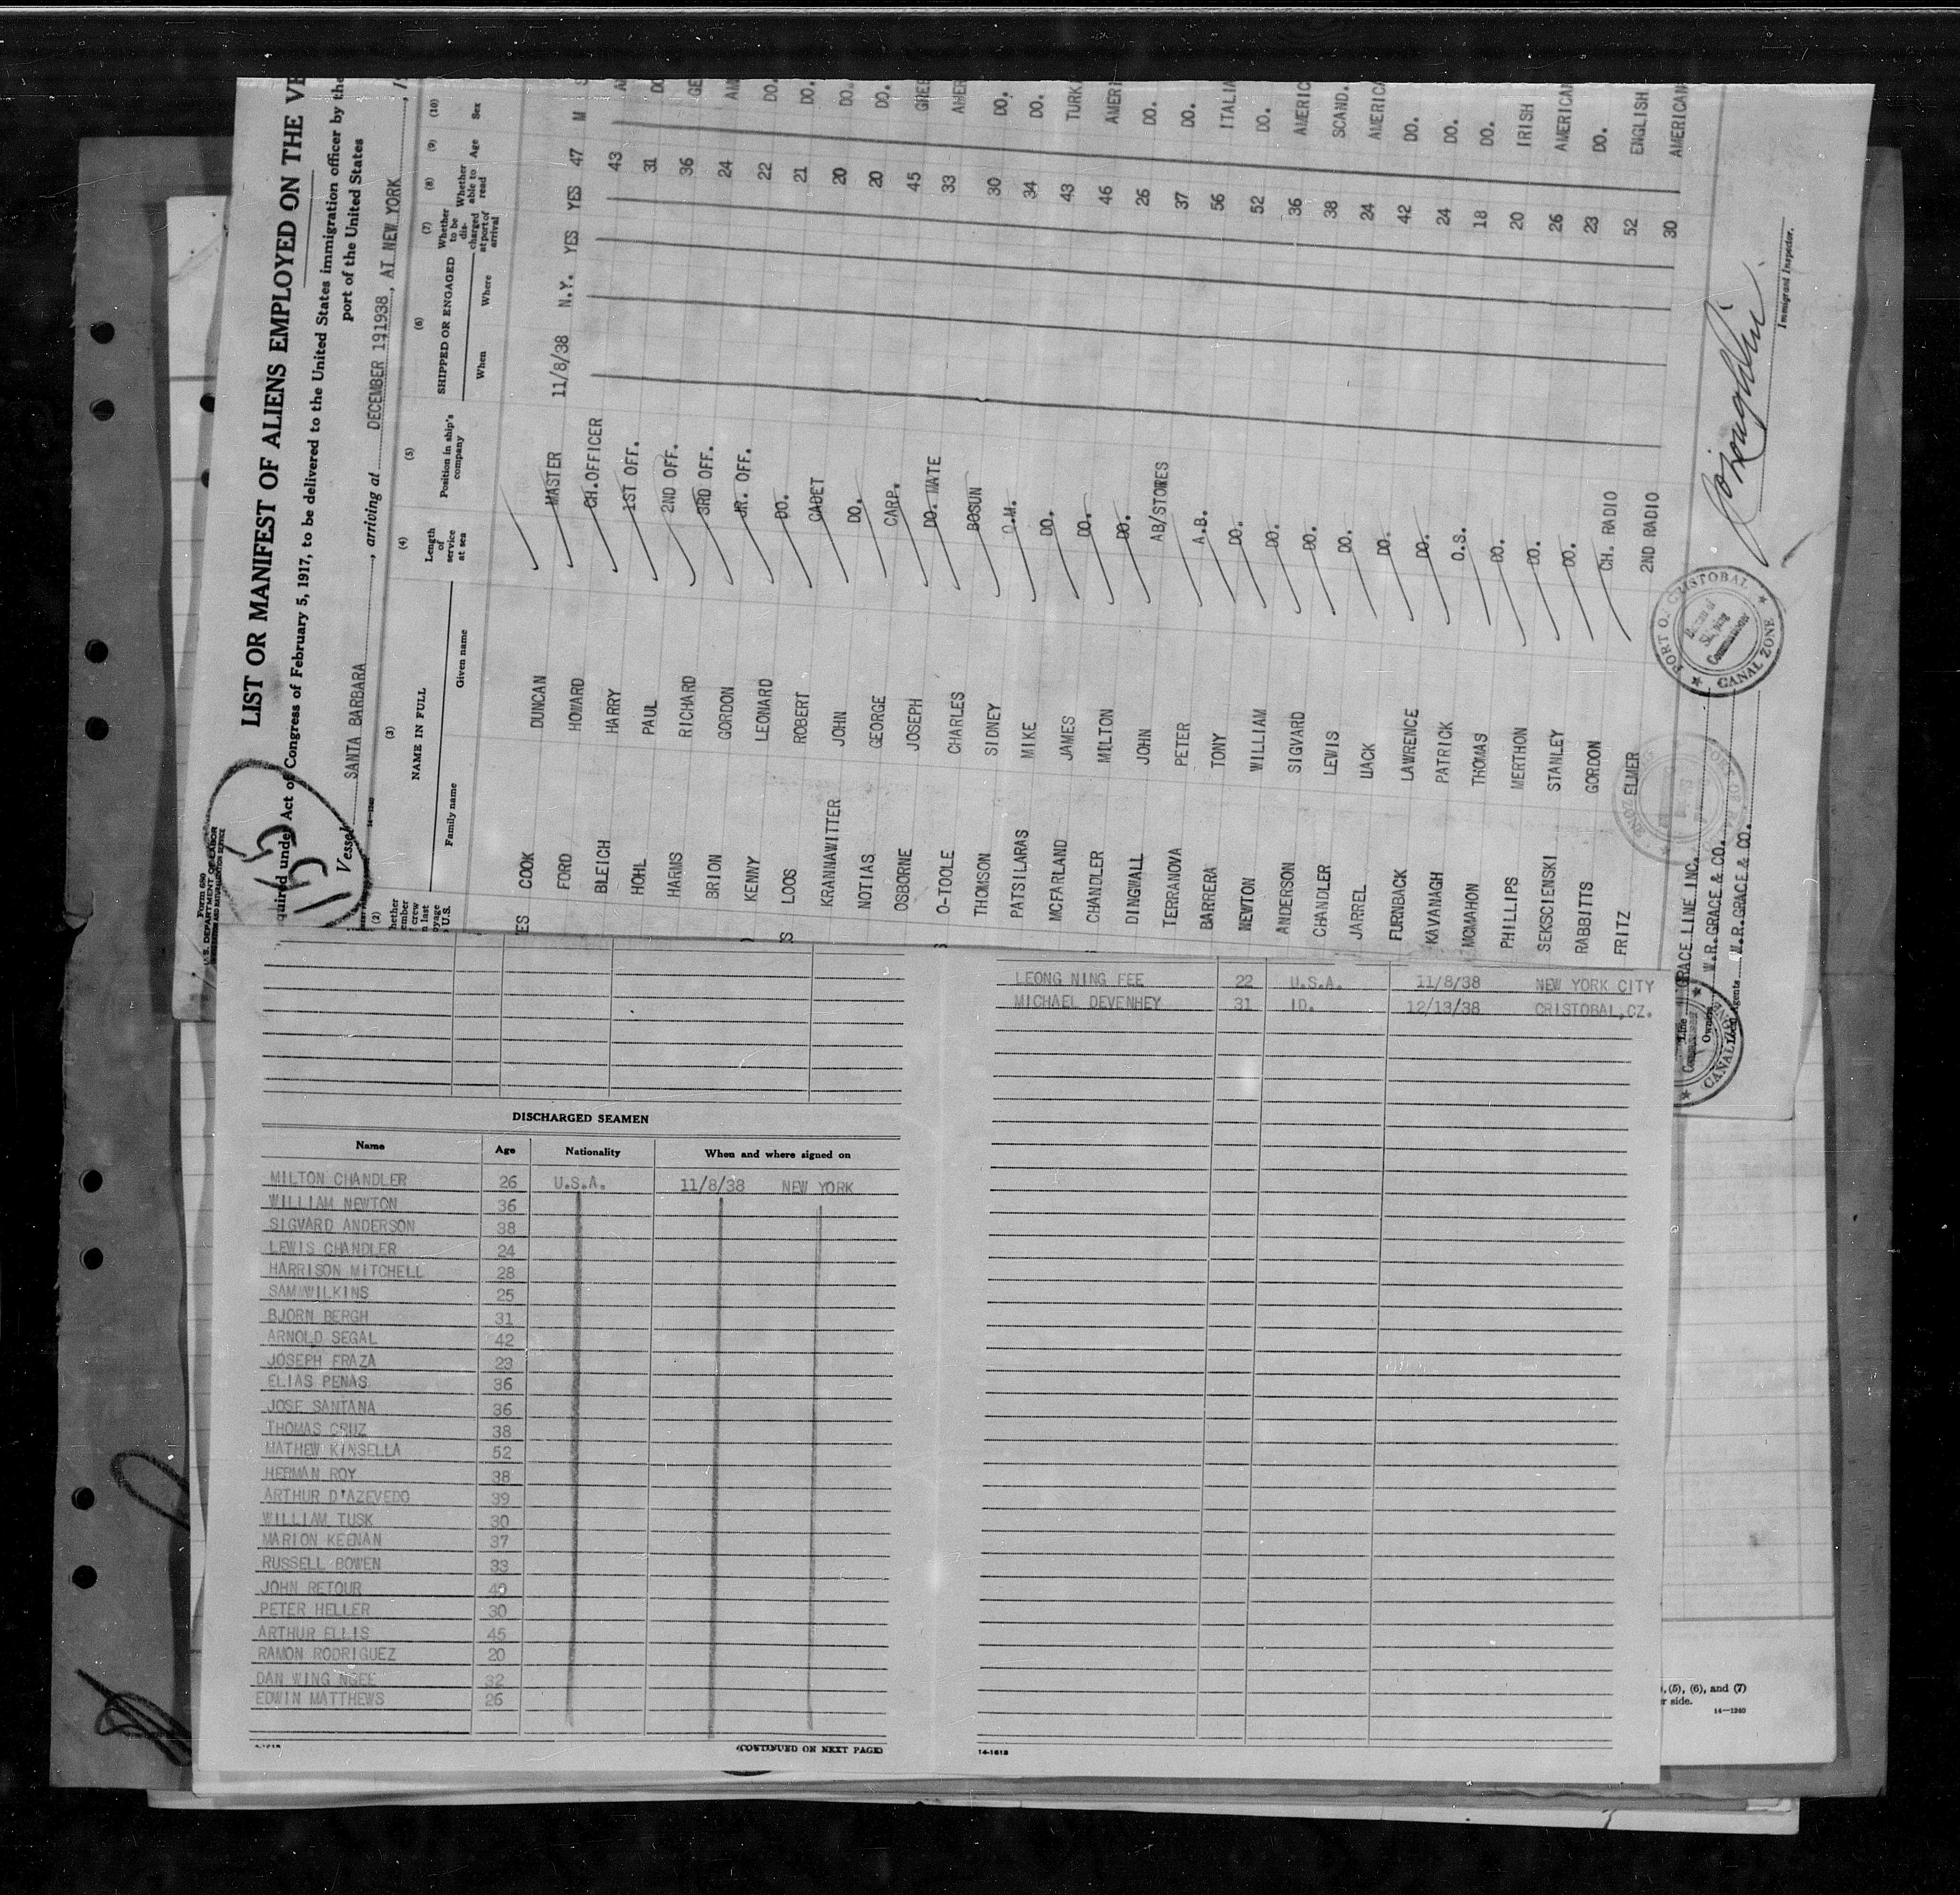 Form 680
U.S. DEPARTMENT OF LABOR
LIST OR MANIFEST OF ALIENS EMPLOYED ON THE VE
quired under Act of Congress of February 5, 1917, to be delivered to the United States immigration officer by the
port of the United States
Vessel SANTA BARBARA, arriving at DECEMBER 191938, AT NEW YORK
(2) (3) (4) (5) (6) (7) (8) (9) (10)
NAME IN FULL Length of service at sea Position in ship's company SHIPPED OR ENGAGED Whether to be discharged at port of arrival Whether able to read Age Sex
Family name Given name When Where
YES COOK DUNCAN MASTER 11/8/38 N.Y. YES YES 47 M S
FORD HOWARD CH.OFFICER 43 AM
BLEICH HARRY 1ST OFF. 31 DO
HOHL PAUL 2ND OFF. 36 GE
HARMS RICHARD 3RD OFF. 24 AM
BRION GORDON JR. OFF. 22 DO.
KENNY LEONARD DO. 21 DO.
LOOS ROBERT CADET 20 DO.
KRANNAWITTER JOHN DO. 20 DO.
NOTIAS GEORGE CARP. 45 GREE
OSBORNE JOSEPH DO. MATE 33 AMER
O-TOOLE CHARLES BOSUN 30 DO.
THOMSON SIDNEY Q.M. 34 DO.
PATSILARAS MIKE DO. 43 TURK
MCFARLAND JAMES DO. 46 AMERI
CHANDLER MILTON DO. 26 DO.
DINGWALL JOHN AB/STORES 37 DO.
TERRANOVA PETER A.B. 56 ITALIA
BARRERA TONY DO. 52 DO.
NEWTON WILLIAM DO. 36 AMERIC
ANDERSON SIGVARD DO. 38 SCAND.
CHANDLER LEWIS DO. 24 AMERICA
JARREL JACK DO. 42 DO.
FURNBACK LAWRENCE DO. 24 DO.
KAVANAGH PATRICK O.S. 18 DO.
MCMAHON THOMAS DO. 20 IRISH
PHILLIPS MERTHON DO. 26 AMERICAN
SEKSCIENSKI STANLEY DO. 23 DO.
RABBITTS GORDON CH. RADIO 52 ENGLISH
FRITZ ELMER 2ND RADIO 30 AMERICAN
Line GRACE LINE INC.
Owners W.R.GRACE & CO.
Local Agents W.R.GRACE & CO.
Immigrant Inspector.
PORT OF CRISTOBAL
CANAL ZONE
LEONG NING FEE 22 U.S.A. 11/8/38 NEW YORK CITY
MICHAEL DEVENHEY 31 ID. 12/13/38 CRISTOBAL,CZ.
DISCHARGED SEAMEN
Name Age Nationality When and where signed on
MILTON CHANDLER 26 U.S.A. 11/8/38 NEW YORK
WILLIAM NEWTON 36
SIGVARD ANDERSON 38
LEWIS CHANDLER 24
HARRISON MITCHELL 28
SAM WILKINS 25
BJORN BERGH 31
ARNOLD SEGAL 42
JOSEPH FRAZA 23
ELIAS PENAS 36
JOSE SANTANA 36
THOMAS CRUZ 38
MATHEW KINSELLA 52
HERMAN ROY 38
ARTHUR D'AZEVEDO 39
WILLIAM TUSK 30
MARION KEENAN 37
RUSSELL BOWEN 33
JOHN RETOUR 40
PETER HELLER 30
ARTHUR ELLIS 45
RAMON RODRIGUEZ 20
DAN WING NGEE 32
EDWIN MATTHEWS 26
(CONTINUED ON NEXT PAGE)
14-1613
, (5), (6), and (7)
r side.
14—1240